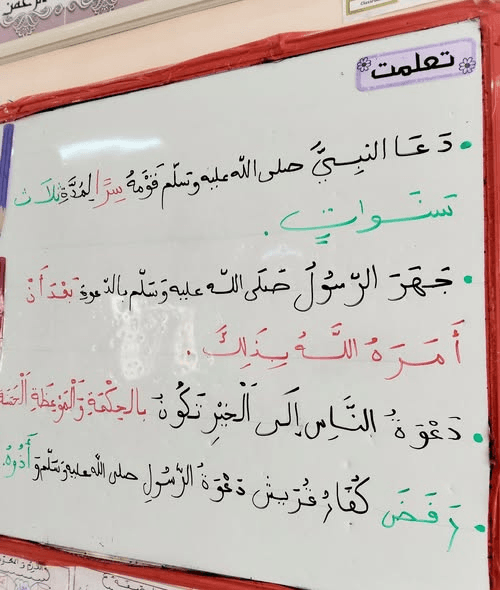 تعلمت
• دَعَا النبِيُّ صلى الله عليه وسلم قَوْمَهُ سِرًا لِمُدَّةِ ثَلَاث
سَنَواتٍ.
• جَهَرَ الرّسُولُ صَلَى اللّه عليه وَسَلّم بالدّعوةِ بَعْدَ أَنْ
أَمَرَهُ اللَّهُ بِذَلِكَ.
• دَعْوَةُ النَّاسِ إِلَى الْخَيْرِ تَكُونُ بالحِكْمَةِ وَالْمَوْعِظَةِ الْحَسَنَة
• رَفَضَ كُفَارُ قُرَيش دَعْوَةَ الرّسُولِ صلى اللّه عليه وسَلّم وَ أَذُوهُ.